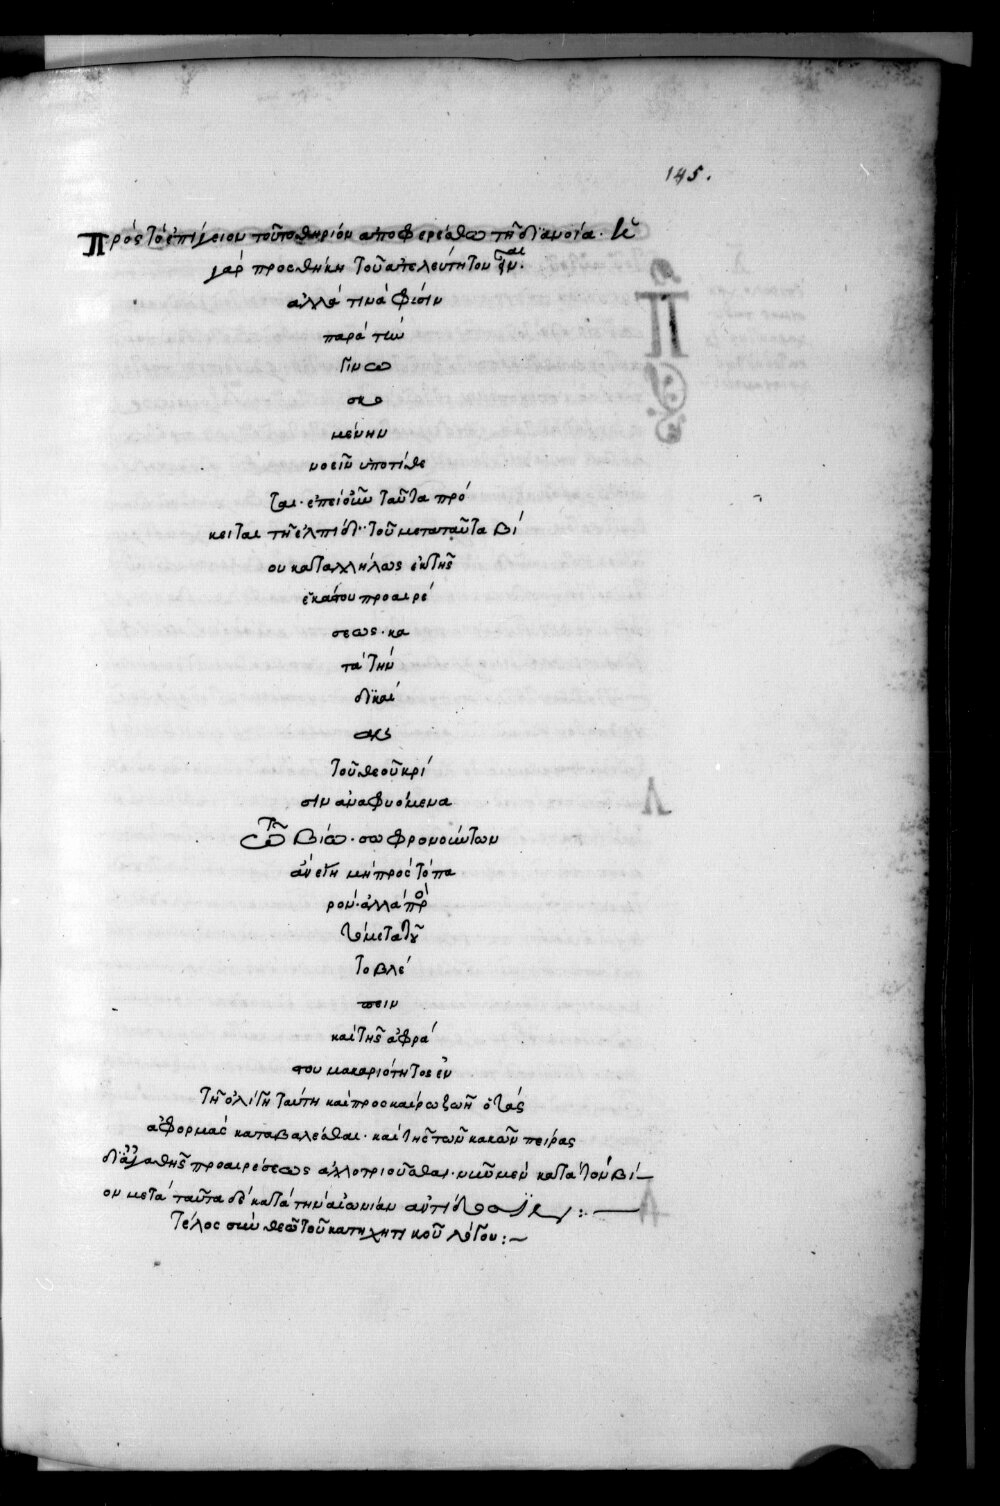 145.
Πρὸς τὸ ἐπίγειον τοῦτο θηρίον ἀποφερέσθω τῆ διανοία. ἡ
γὰρ προσθήκη τοῦ ἀτελεύτητον εἶναι
ἀλλά τινα φύσιν
παρὰ τὴν
γινω
σκο
μένην
νοεῖν ὑποτίθε
ται. ἐπεὶ οὖν ταῦτα πρό
κειται τῆ ἐλπίδι τοῦ μεταταῦτα βί
ου καταλλήλως ἐκ τῆς
ἑκάστου προαιρέ
σεως. κα
τὰ τὴν
δικαί
αν
τοῦ θεοῦ κρί
σιν ἀναφυόμενα
τῶ βίω. σωφρονούντων
ἂν εἴη μὴ πρὸς τὸ πα
ρόν. ἀλλὰ πρὸς
τὸ μετὰ τοῦ
το βλέ
πειν
καὶ τῆς ἀφρά
στου μακαριότητος ἐν
τῆ ὀλίγη ταύτη καὶ προσκαίρω ζωῆ τὰς
ἀφορμὰς καταβαλέσθαι. καὶ τῆς τῶν κακῶν πείρας
δι' ἀγαθῆς προαιρέσεως ἀλλοτριοῦσθαι. νῦν μὲν κατὰ τὸν βί
ον μετὰ ταῦτα δὲ κατὰ τὴν αἰωνίαν ἀντίδοσιν :—
Τέλος σὺν θεῶ τοῦ κατηχητικοῦ λόγου :~